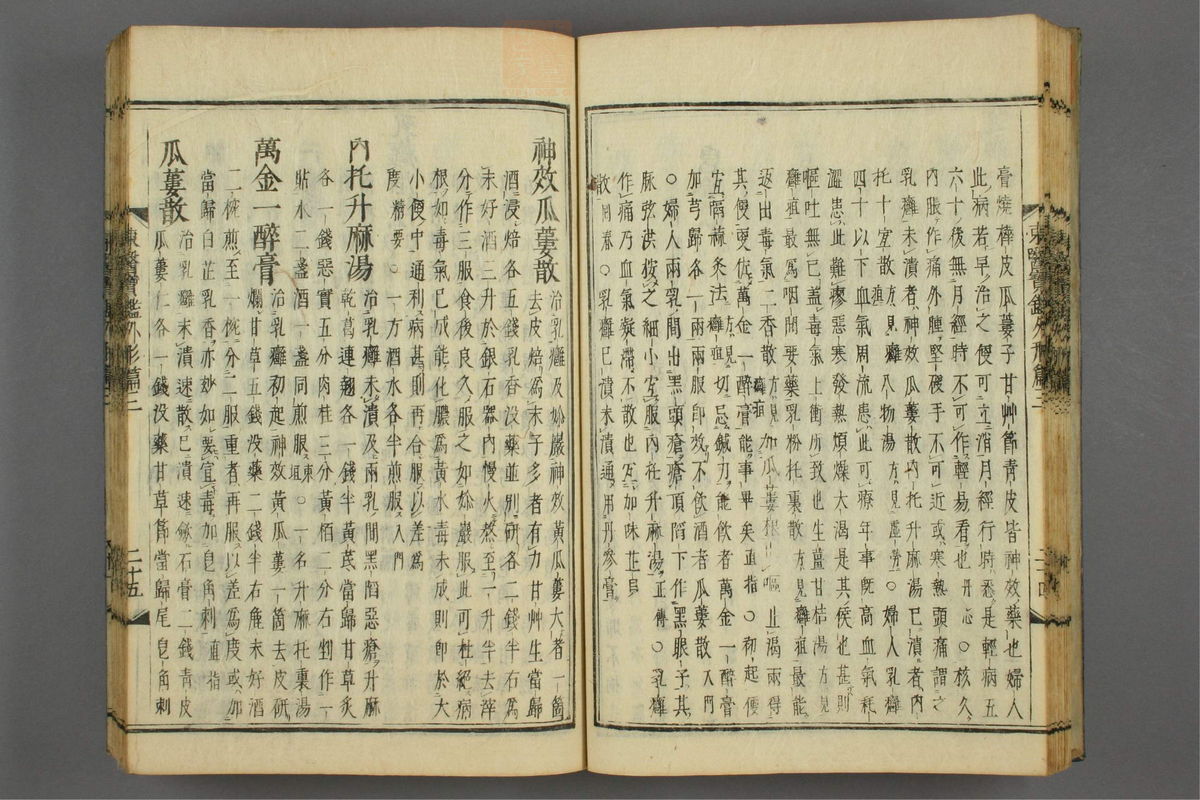 膏燒樺皮瓜蔞子甘艸節青皮皆神效藥也婦人
此病若早治之便可立消月經行時悉是輕病五
六十後無月經時不可作輕易看也丹心○核久
內脹作痛外腫堅硬手不可近或寒熱頭痛謂之
乳癰未潰者神效瓜蔞散內托升麻湯已潰者內
托十宣散方見癰疽八物湯方見虛勞○婦人乳癰
四十以下下血氣周流患此可療年事旣高血氣耗
澀患此難瘳惡寒發熱煩燥大渴是其候也甚則
嘔吐無已盖毒氣上衝所致也生薑甘桔湯方見
癰疽最爲咽間要藥乳粉托裏散方見癰疽最能
返出毒氣二香散方見癰疽加瓜蔞根止嘔止渴兩得
其便更佐萬金一醉膏能事畢矣直指○初起便
宜隔蒜灸法方見癰疽切忌鍼刀能飲者萬金一醉膏
加芎歸各一兩服卽效不飲酒者瓜蔞散入門
○婦人兩乳間出黑頭瘡瘡頂陷下作黑眼子其
脉弦洪按之細小宜服內托升麻湯正傳○乳癰
作痛乃血氣凝滯不散也宜加味芷貝
散回春○乳癰已潰未潰通用丹參膏
神效瓜蔞散治乳癰及妳巖神效黃瓜蔞大者一箇
去皮焙爲末子多者有力甘艸生當歸
酒浸焙各五錢乳香沒藥並別硏各二錢半右爲
末好酒三升於銀石器內慢火熬至一升半去滓
分作三服食後良久服之如妳巖服此可杜絕病
根如毒氣已成能化膿爲黃水毒未成則卽於大
小便中通利病甚則再合服以差爲
度精要○一方酒水各半煎服入門
內托升麻湯治乳癰未潰及兩乳間黑陷惡瘡升麻
乾葛連翹各一錢半黃芪當歸甘草炙
各一錢惡實五分肉桂三分黃栢二分右剉作一
貼水二盞酒一盞同煎服東垣○一名升麻托裏湯
萬金一醉膏治乳癰初起神效黃瓜蔞一箇去皮硏
爛甘草五錢沒藥二錢半右麁末好酒
二椀煎至一椀分二服重者再服以差爲度或加
當歸白芷乳香亦妙如要宜毒加皂角刺直指
瓜蔞散治乳癰未潰速散已潰速斂石膏二錢靑皮
瓜蔞仁各一錢沒藥甘草節當歸尾皂角刺
東醫寶鑑外形篇三
二十五